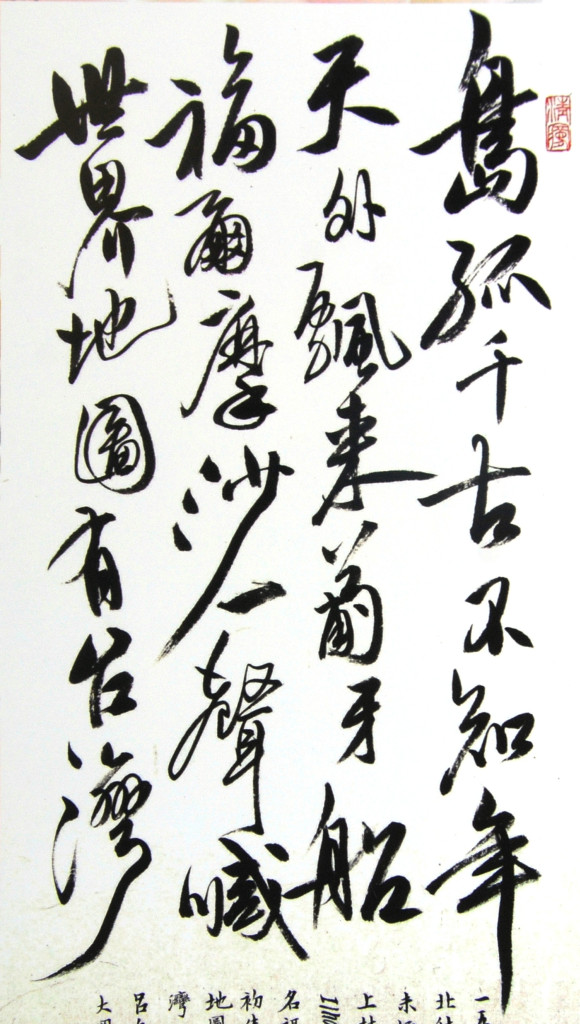 島孤千古不知年
天外飄來葡牙船
福爾摩沙一聲喊
世界地圖有台灣
一五
北結
未
上
Ilha
名
初
地圖
灣
呂
大